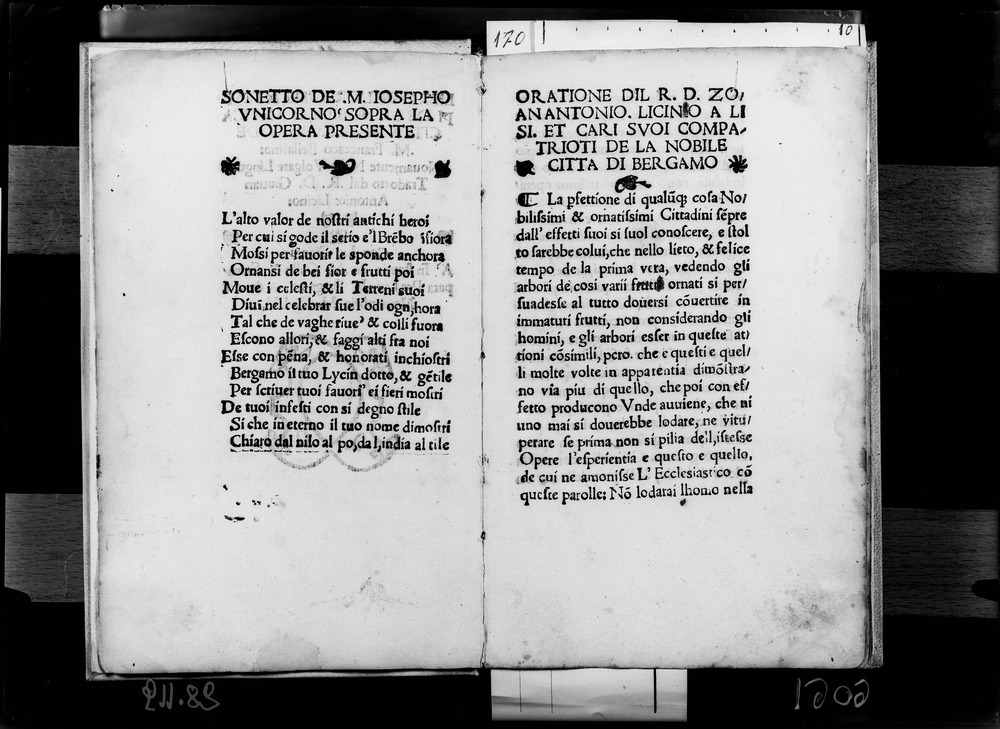 170
10
SONETTO DE .M. IOSEPHO
VNICORNO SOPRA LA
OPERA PRESENTE
L'alto valor de nostri antichi heroi
Per cui si gode il serio e'l Brēbo
Mossi per fauorir le sponde anchora
Ornansi de bei fior e frutti poi
Moue i celesti, & li Terreni suoi
Diui nel celebrar sue l'odi ogn,hora
Tal che de vaghe riue & colli fuora
Escono allori, & faggi alti fra noi
Esse con pēna, & honorati inchiostri
Bergamo il tuo Lycin dotto, & gētile
Per scriuer tuoi fauori ei fieri mostri
De tuoi infesti con si degno stile
Si che in eterno il tuo nome dimostri
Chiaro dal nilo al po, da l,india al tile
ORATIONE DIL R. D. ZO/
ANANTONIO. LICINIO A LI
SI. ET CARI SVOI COMPA/
TRIOTI DE LA NOBILE
CITTA DI BERGAMO
¶ La pfettione di qualūq; cosa No/
bilissimi & ornatissimi Cittadini sēpre
dall' effetti suoi si suol conoscere, e stol
to sarebbe colui, che nello lieto, & felice
tempo de la prima vera, vedendo gli
arbori de cosi varii frutti ornati si per/
suadesse al tutto douersi cōuertire in
immaturi frutti, non considerando gli
homini, e gli arbori esser in queste at/
tioni cōsimili, pero. che e questi e quel/
li molte volte in apparentia dimōstra/
no via piu di quello, che poi con ef/
fetto producono Vnde auuiene, che ni
uno mai si douerebbe lodare, ne vitu/
perare se prima non si pilia dell,istesse
Opere l'esperientia e questo e quello,
de cui ne amonisse L' Ecclesiastico cō
queste parolle: Nō lodarai lhomo nella